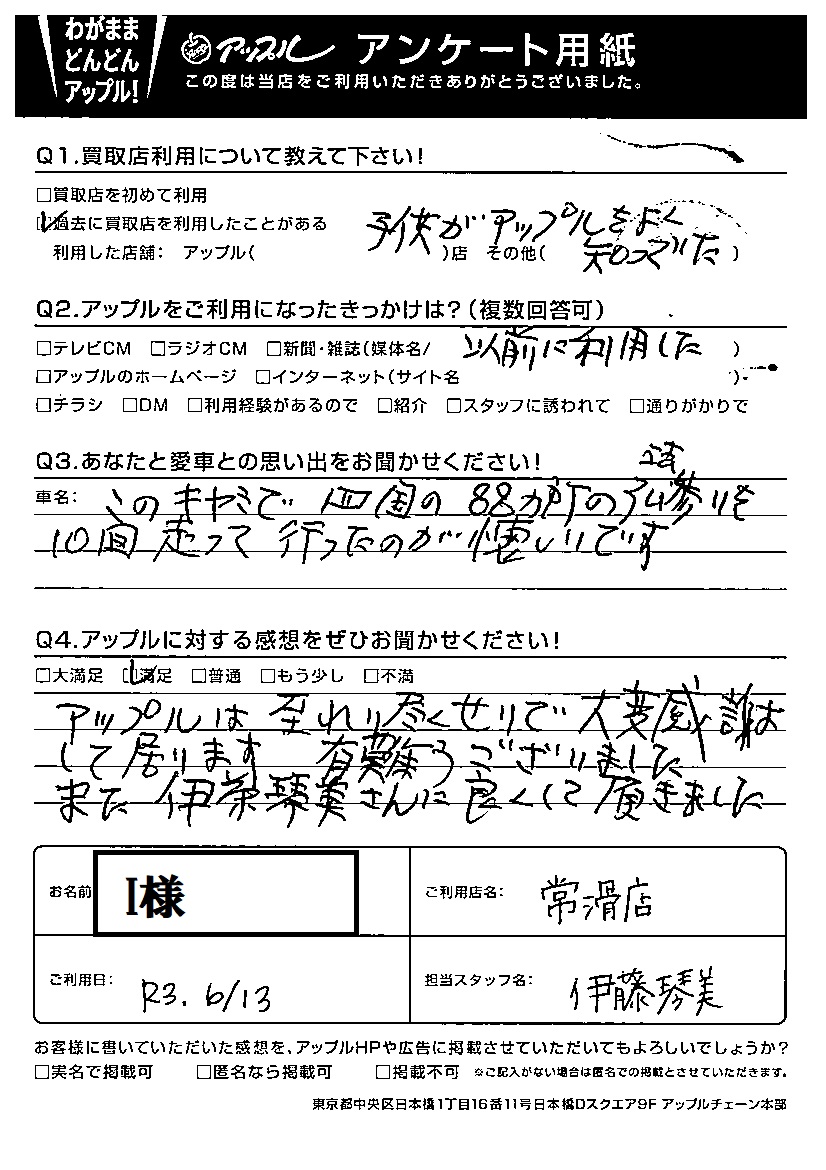 わがまま
どんどん
アップル!
アップル アンケート用紙
この度は当店をご利用いただきありがとうございました。
Q1.買取店利用について教えて下さい!
□買取店を初めて利用
☑過去に買取店を利用したことがある
子供がアップルをよく
利用した店舗: アップル( )店 その他( 知っていた )
Q2.アップルをご利用になったきっかけは?(複数回答可)
□テレビCM □ラジオCM □新聞・雑誌(媒体名/ 以前に利用した )
□アップルのホームページ □インターネット(サイト名 )
□チラシ □DM □利用経験があるので □紹介 □スタッフに誘われて □通りがかりで
Q3.あなたと愛車との思い出をお聞かせください!
車名: このキャミで 四国の88か所のお参りを
10回 走って 行ったのが 懐しいです
Q4.アップルに対する感想をぜひお聞かせください!
□大満足 ☑満足 □普通 □もう少し □不満
アップルは 至れり尽くせりで 大変感謝お
して居ります 有難うございました
また 伊藤琴美さんに良くして頂きました
お名前 I様
ご利用店名: 常滑店
ご利用日: R3. 6/13
担当スタッフ名: 伊藤琴美
お客様に書いていただいた感想を、アップルHPや広告に掲載させていただいてもよろしいでしょうか?
□実名で掲載可 □匿名なら掲載可 □掲載不可 ※ご記入がない場合は匿名での掲載とさせていただきます。
東京都中央区日本橋1丁目16番11号日本橋Dスクエア9F アップルチェーン本部